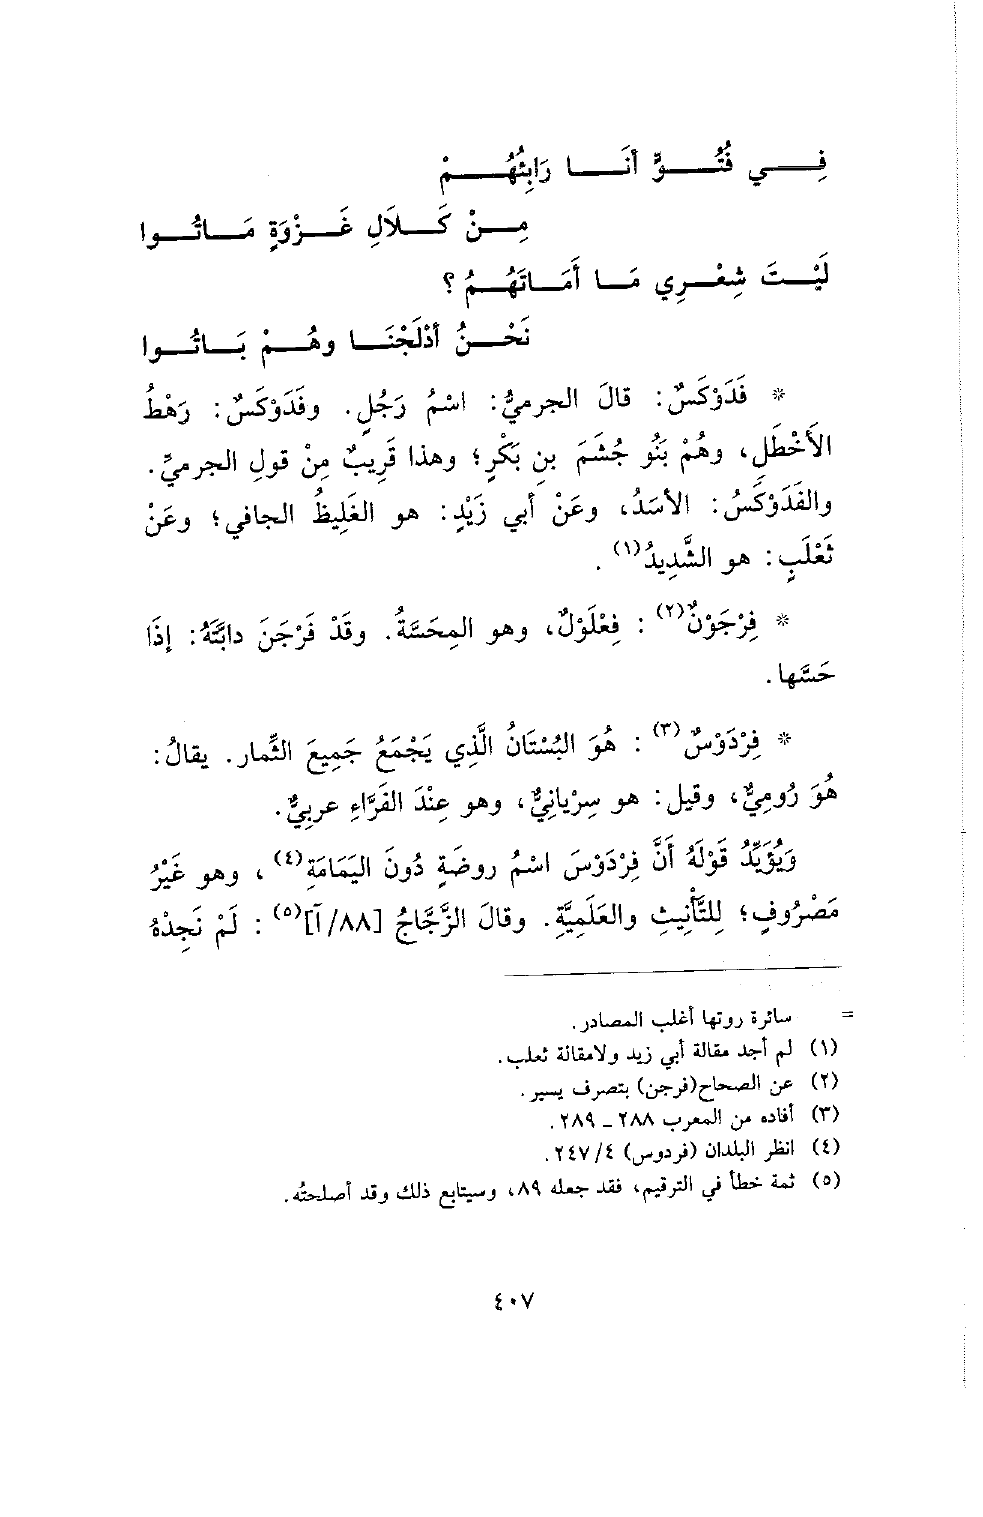 فِــي فُتُــوٍّ أنَــا رَابِئُهُــمْ
مِــنْ كَــلاَلِ غَــزْوَةٍ مَــاتُــوا
لَيْــتَ شِعْــرِي مَــا أَمَــاتَهُــمُ ؟
نَحْــنُ أدْلَجْنَــا وهُــمْ بَــاتُــوا
* فَدَوْكَسٌ: قالَ الجرميُّ: اسْمُ رَجُلٍ. وفَدَوْكَسٌ: رَهْطُ
الأَخْطَلِ، وهُمْ بَنُو جُشَمَ بنِ بَكْرٍ؛ وهذا قَرِيبٌ مِنْ قولِ الجرميِّ.
والفَدَوْكَسُ: الأسَدُ، وعَنْ أبي زَيْدٍ: هو الغَلِيظُ الجافي؛ وعَنْ
ثَعْلَبٍ: هو الشَّدِيدُ(١).
* فِرْجَوْنٌ(٢): فِعْلَوْلٌ، وهو المِحَسَّةُ. وقَدْ فَرْجَنَ دابَّتَهُ: إذَا
حَسَّها.
* فِرْدَوْسٌ(٣): هُوَ البُسْتَانُ الَّذِي يَجْمَعُ جَمِيعَ الثِّمار. يقالُ:
هُوَ رُومِيٌّ، وقيل: هو سِرْيانِيٌّ، وهو عِنْدَ الفَرَّاءِ عربِيٌّ.
وَيُؤَيِّدُ قَوْلَهُ أَنَّ فِرْدَوْسَ اسْمُ روضَةٍ دُونَ اليَمَامَةِ(٤)، وهو غَيْرُ
مَصْرُوفٍ؛ لِلتَّأْنِيثِ والعَلَمِيَّةِ. وقالَ الزَّجَّاجُ [٨٨/آ](٥): لَمْ نَجِدْهُ
= سائرة روتها أغلب المصادر.
(١) لم أجد مقالة أبي زيد ولامقالة ثعلب.
(٢) عن الصحاح(فرجن) بتصرف يسير.
(٣) أفاده من المعرب ٢٨٨ ـ ٢٨٩.
(٤) انظر البلدان (فردوس) ٤/ ٢٤٧.
(٥) ثمة خطأ في الترقيم، فقد جعله ٨٩، وسيتابع ذلك وقد أصلحتُه.
٤٠٧